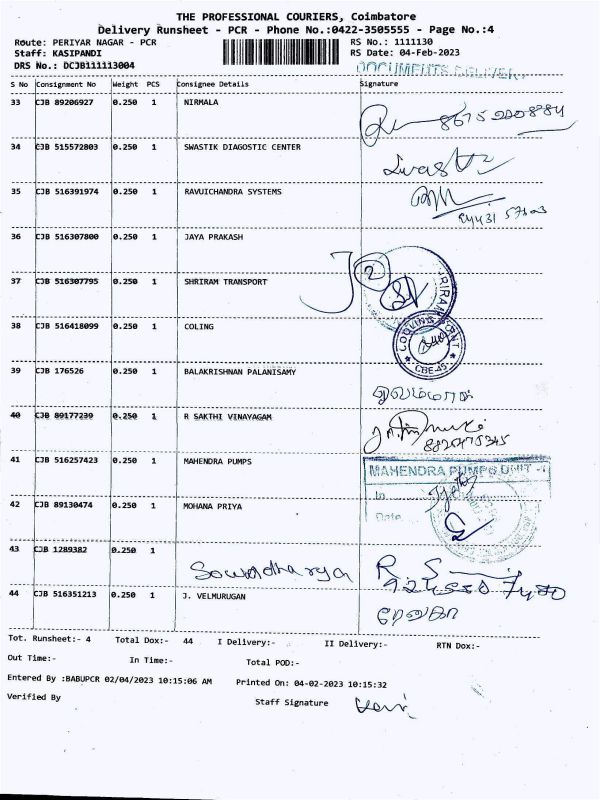 THE PROFESSIONAL COURIERS, Coimbatore
Delivery Runsheet - PCR - Phone No.:0422-3505555 - Page No.:4
Route: PERIYAR NAGAR - PCR RS No.: 1111130
Staff: KASIPANDI RS Date: 04-Feb-2023
DRS No.: DCJB111113004
S No Consignment No Weight PCS Consignee Details Signature
33 CJB 89206927 0.250 1 NIRMALA
34 CJB 515572803 0.250 1 SWASTIK DIAGOSTIC CENTER
35 CJB 516391974 0.250 1 RAVUICHANDRA SYSTEMS
36 CJB 516307800 0.250 1 JAYA PRAKASH
37 CJB 516307795 0.250 1 SHRIRAM TRANSPORT
38 CJB 516418099 0.250 1 COLING
39 CJB 176526 0.250 1 BALAKRISHNAN PALANISAMY
40 CJB 89177239 0.250 1 R SAKTHI VINAYAGAM
41 CJB 516257423 0.250 1 MAHENDRA PUMPS MAHENDRA PUMPS UNIT
In
42 CJB 89130474 0.250 1 MOHANA PRIYA
Date
43 CJB 1289382 0.250 1 Soundharya
44 CJB 516351213 0.250 1 J. VELMURUGAN ரேவதி
Tot. Runsheet:- 4 Total Dox:- 44 I Delivery:- II Delivery:- RTN Dox:-
Out Time:- In Time:- Total POD:-
Entered By :BABUPCR 02/04/2023 10:15:06 AM Printed On: 04-02-2023 10:15:32
Verified By Staff Signature